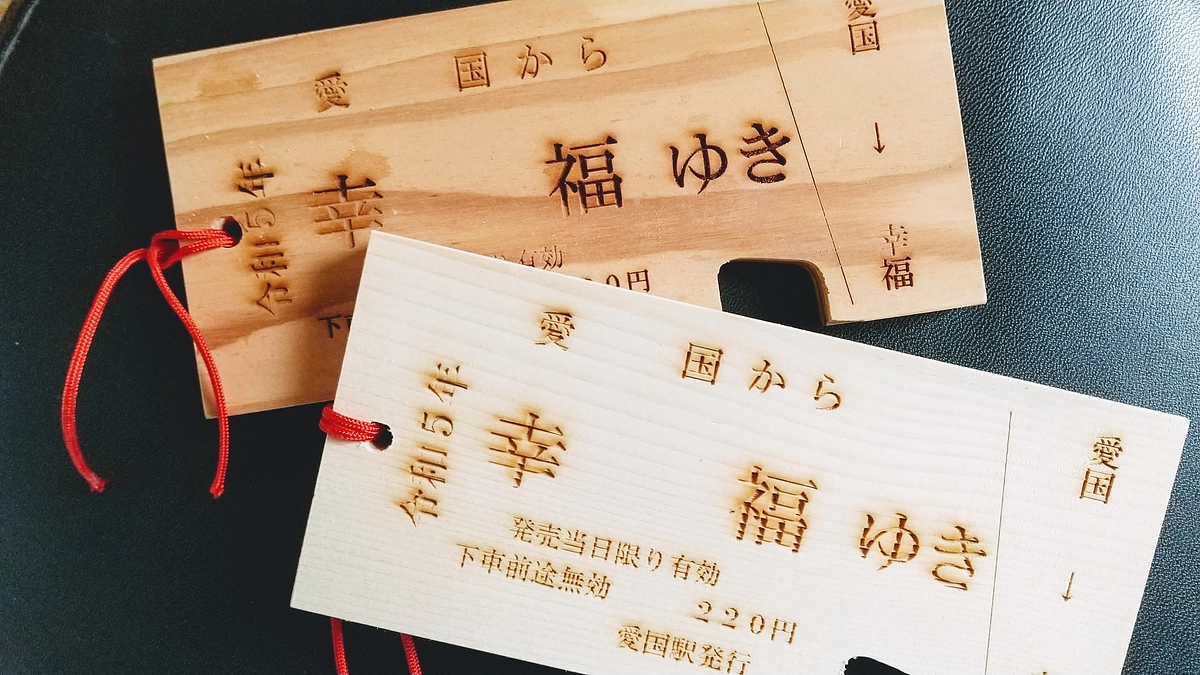 愛国から
幸福ゆき
令和5年
有効
0円
下
愛国
↓
幸福
愛国から
幸福ゆき
令和5年
発売当日限り有効
下車前途無効
220円
愛国駅発行
愛国
↓